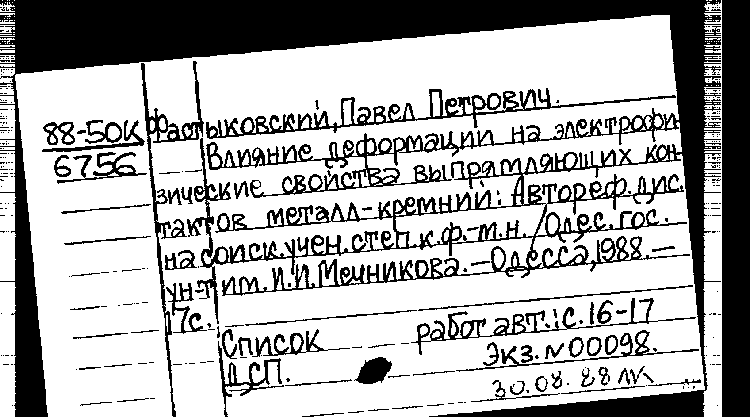 88-50К
6756
Фастыковский, Павел Петрович.
Влияние деформации на электрофи-
зические свойства выпрямляющих кон-
тактов металл-кремний: Автореф. дис.
на соиск. учен. степ. к.ф.-м.н. / Одес. гос.
ун-т им. И.И. Мечникова. — Одесса, 1988. —
17с.
Список работ авт.: с. 16-17
ДСП. Экз. N 00098.
30.08.88 ЛК